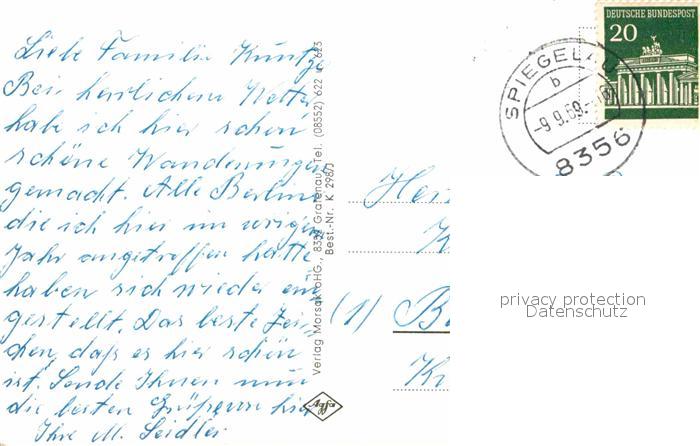 Liebe Familie Kuntze
Bei herrlichem Wetter
habe ich hier schon
schöne Wanderungen
gemacht. Alle Berliner
die ich hier im vorigen
Jahr angetroffen hatte
haben sich wieder ein
gestellt. Das beste Zei-
chen, daß es hier schön
ist. Sende Ihnen nun
die besten Grüße von hier
Ihre M. Seidler
Verlag Morsak oHG., 8352 Grafenau, Tel. (08552) 622 u. 623
Best.-Nr. K 298/J
Agfa
DEUTSCHE BUNDESPOST
20
SPIEGELAU
b
-9.9.69
8356
Her
(1) B
privacy protection
Datenschutz